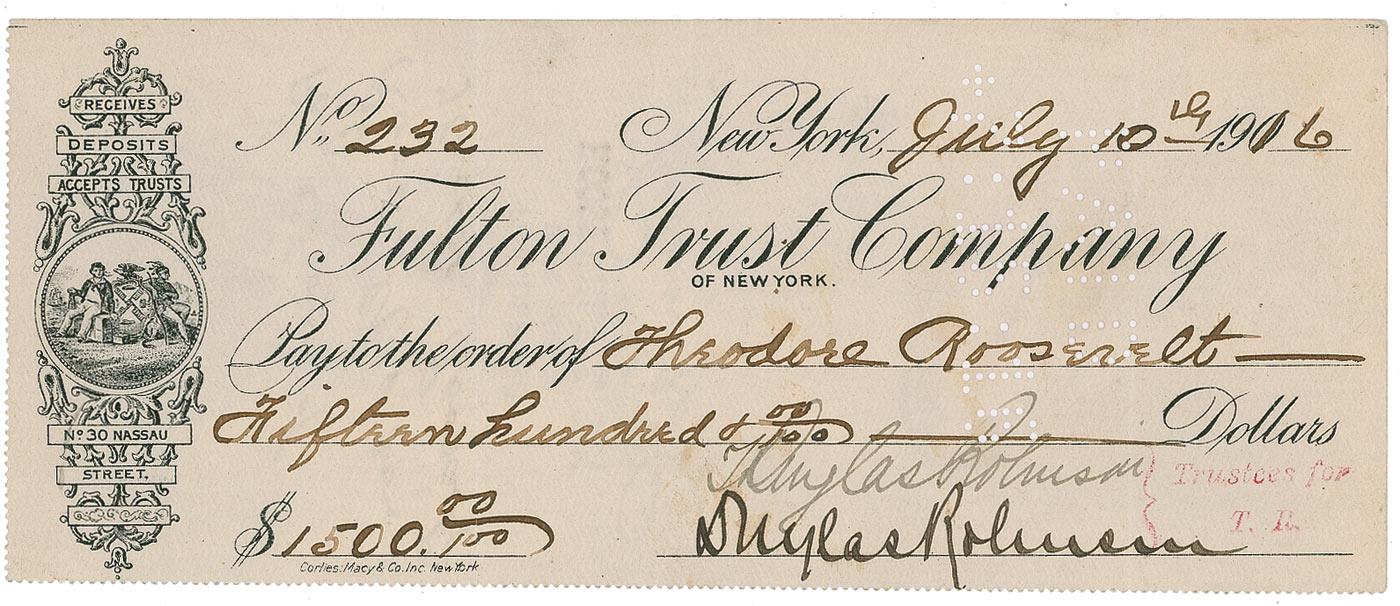 RECEIVES
DEPOSITS
ACCEPTS TRUSTS
No 30 NASSAU
STREET,
No. 232 New York, July 10th 1906
Fulton Trust Company
OF NEW YORK.
Pay to the order of Theodore Roosevelt
Fifteen hundred & 00/100 Dollars
Douglas Robinson
Trustees for
T. R.
$1500.00/100
Douglas Robinson
Corlies, Macy & Co. Inc. New York